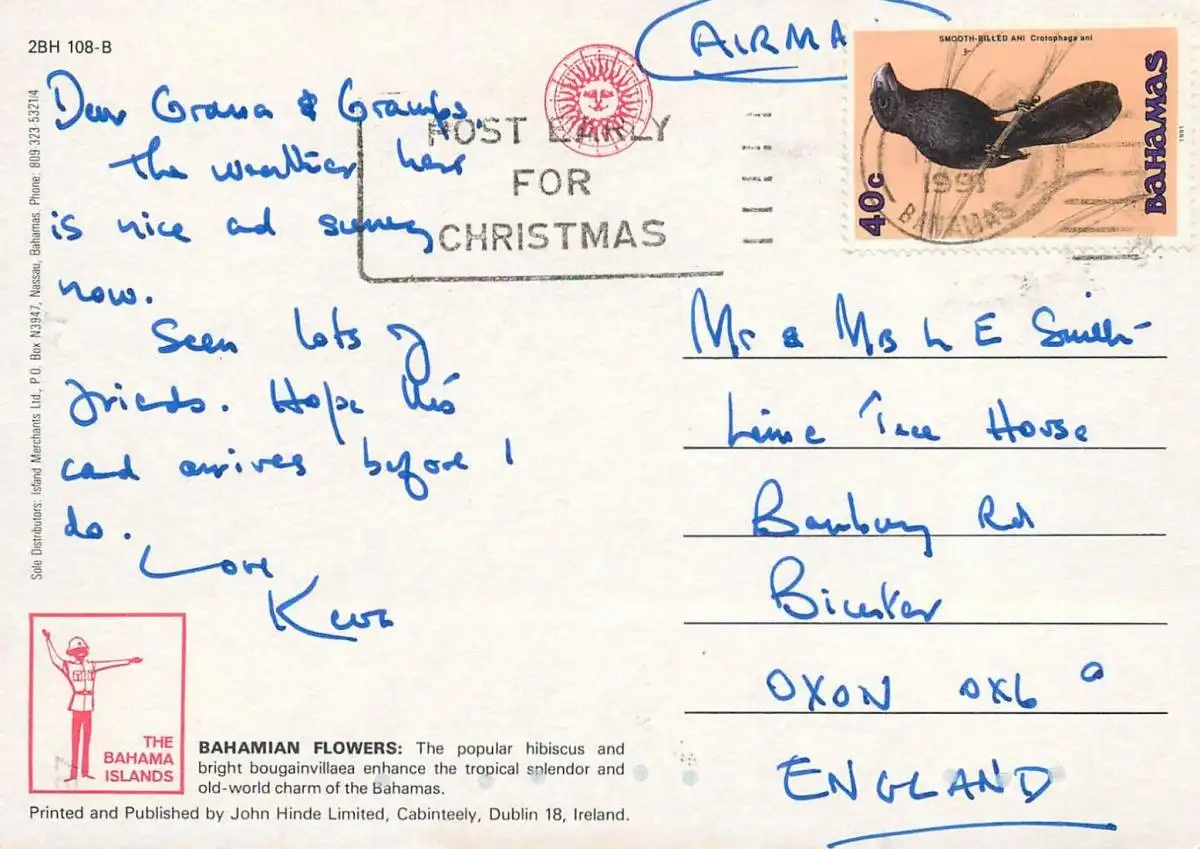 2BH 108-B
AIRMA
SMOOTH-BILLED ANI Crotophaga ani
BAHAMAS
1991
40c
1991
BAHAMAS
POST EARLY
FOR
CHRISTMAS
Dear Grana & Gramps,
The weather here
is nice ad sunny
now.
Seen lots of
friends. Hope this
card arrives before I
do.
Love
Mr & Mrs L E Smith
Lime Tree House
Banbury Rd
Bicester
OXON OX6
ENGLAND
Sole Distributors: Island Merchants Ltd., P.O. Box N3947, Nassau, Bahamas. Phone: 809-323-5321/4
THE
BAHAMA
ISLANDS
BAHAMIAN FLOWERS: The popular hibiscus and
bright bougainvillaea enhance the tropical splendor and
old-world charm of the Bahamas.
Printed and Published by John Hinde Limited, Cabinteely, Dublin 18, Ireland.